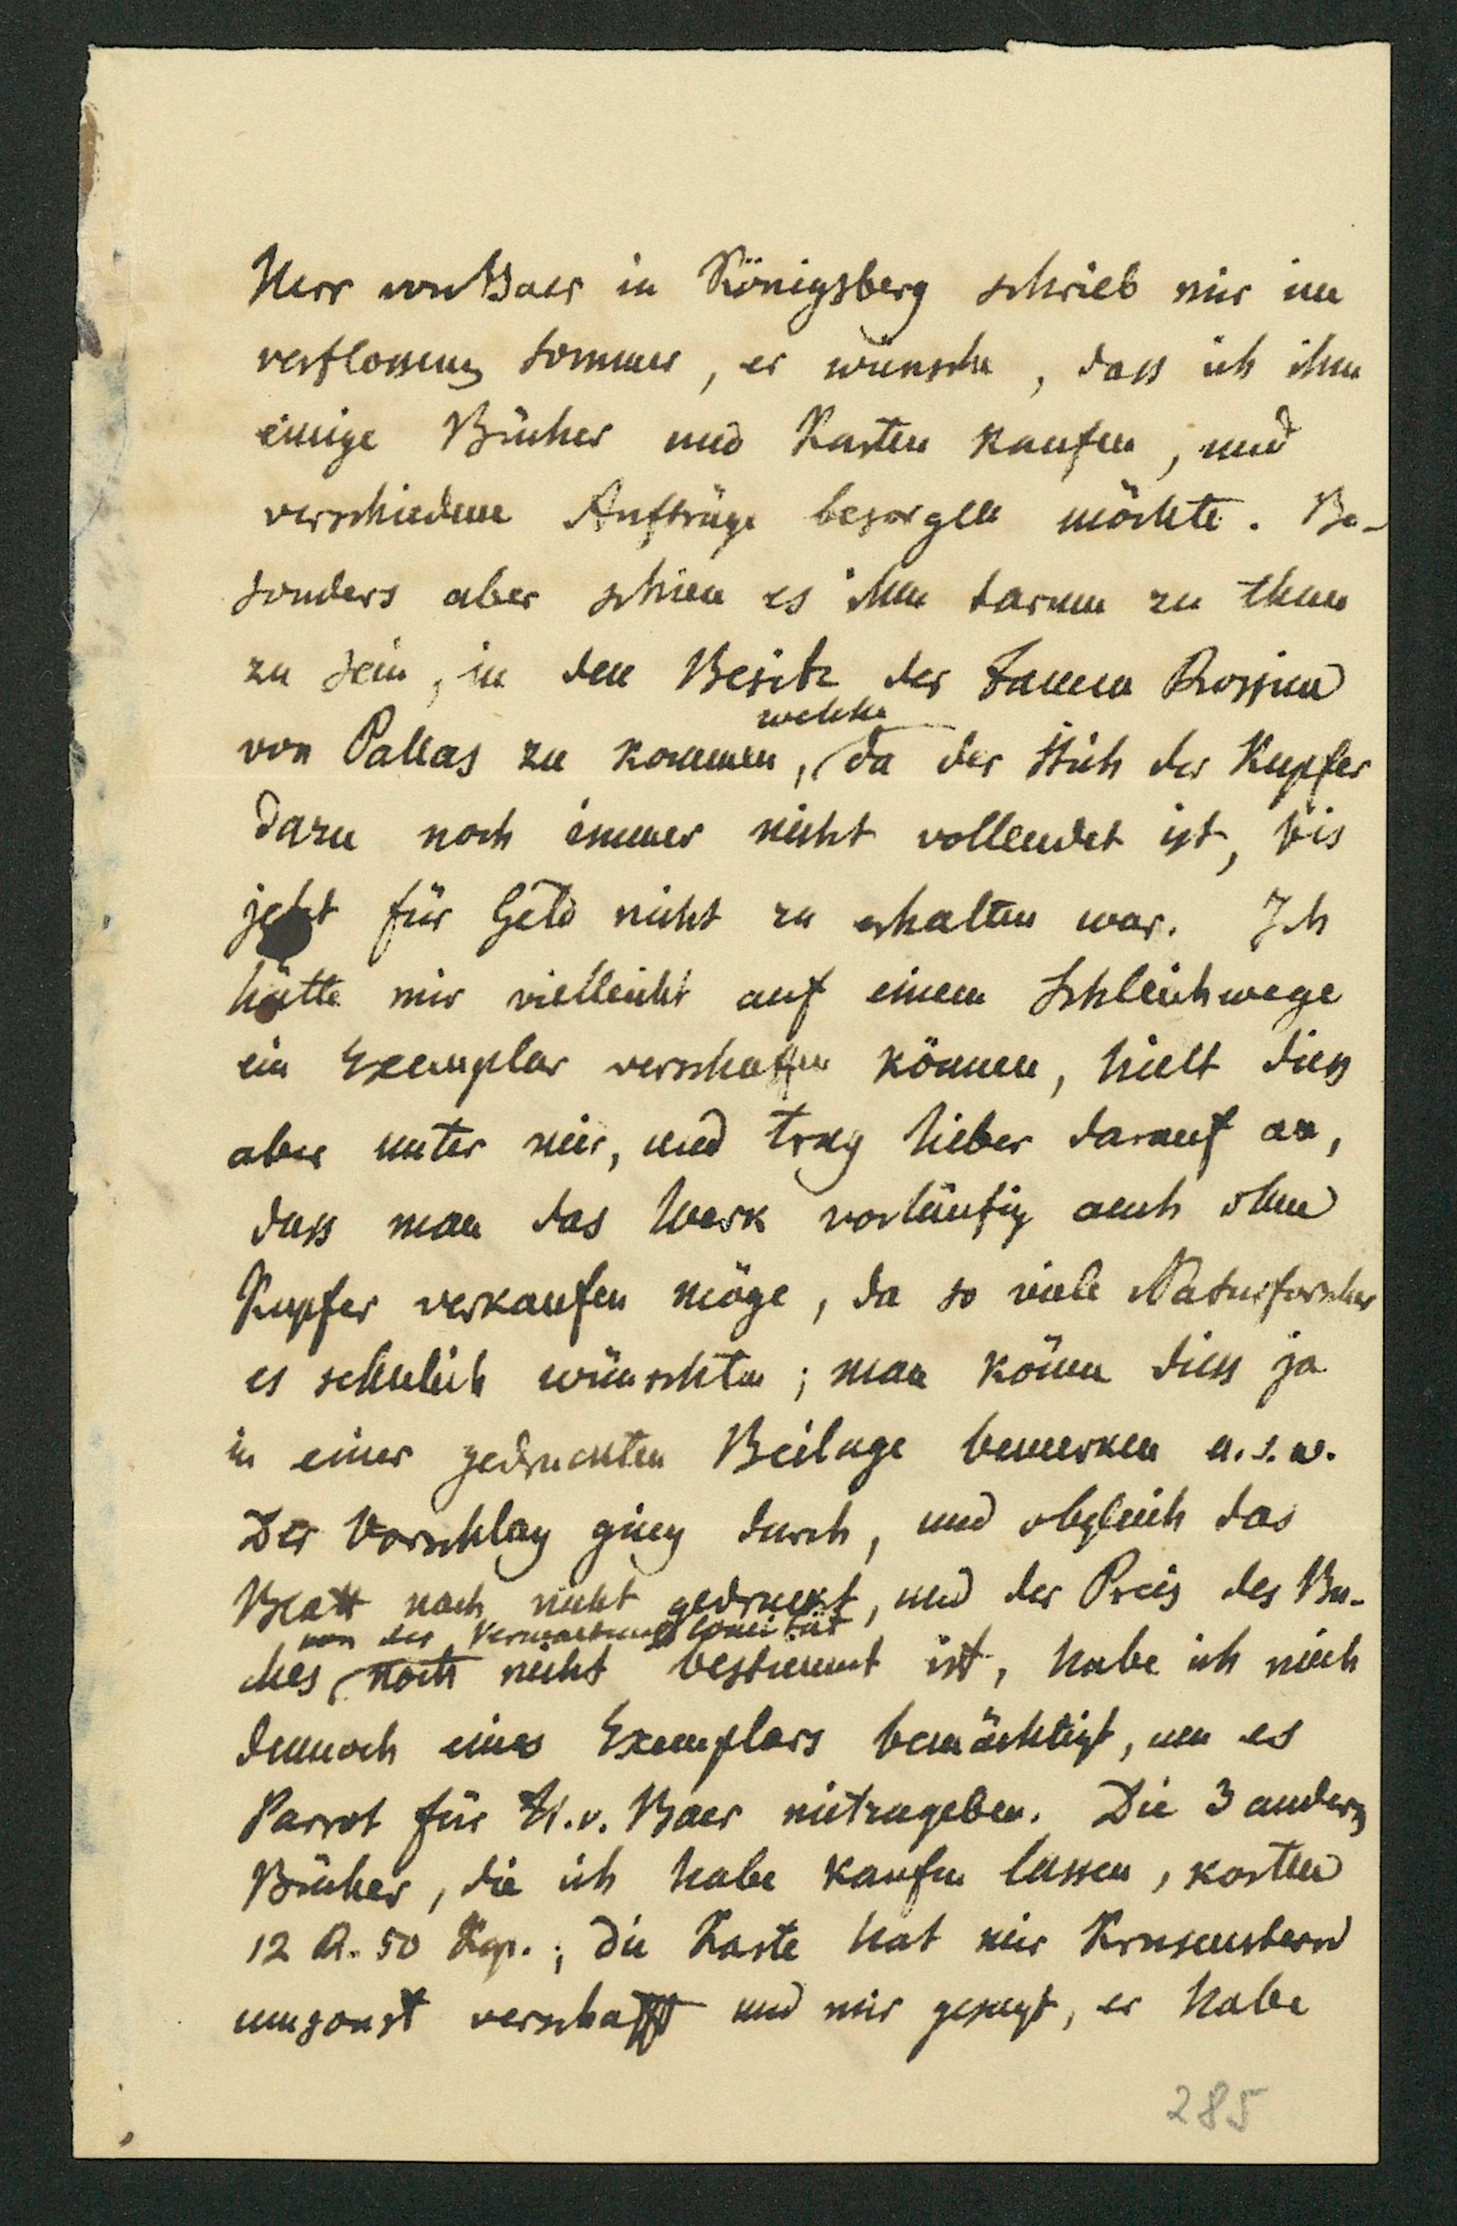 Herr von Baer in Königsberg schrieb mir im
verflossenen Sommer, er wünsche, dass ich ihm
einige Bücher und Karten kaufen, und
verschiedene Aufträge besorgen möchte. Be-
sonders aber schien es ihm darum zu thun
zu sein, in den Besitz der Fauna Rossica
welche
von Pallas zu kommen, da der Stich der Kupfer
dazu noch immer nicht vollendet ist, bis
jetzt für Geld nicht zu erhalten war. Ich
hätte mir vielleicht auf einem Schleichwege
ein Exemplar verschaffen können, hielt diess
aber unter mir, und trug lieber darauf an,
dass man das Werk vorläufig auch ohne
Kupfer verkaufen möge, da so viele Naturforscher
es sehnlich wünschten; man könne diess ja
in einer gedruckten Beilage bemerken u.s.w.
Der Vorschlag ging durch, und obgleich das
Blatt noch nicht gedruckt, und der Preis des Bu-
von der Verwaltungs Comität
ches noch nicht bestimmt ist, habe ich mich
dennoch eines Exemplars bemächtigt, um es
Parrot für H. v. Baer mitzugeben. Die 3 andern
Bücher, die ich habe kaufen lassen, kosten
12 R. 50 Kop.; die Karte hat mir Krusenstern
umsonst verschafft und mir gesagt, er habe
285